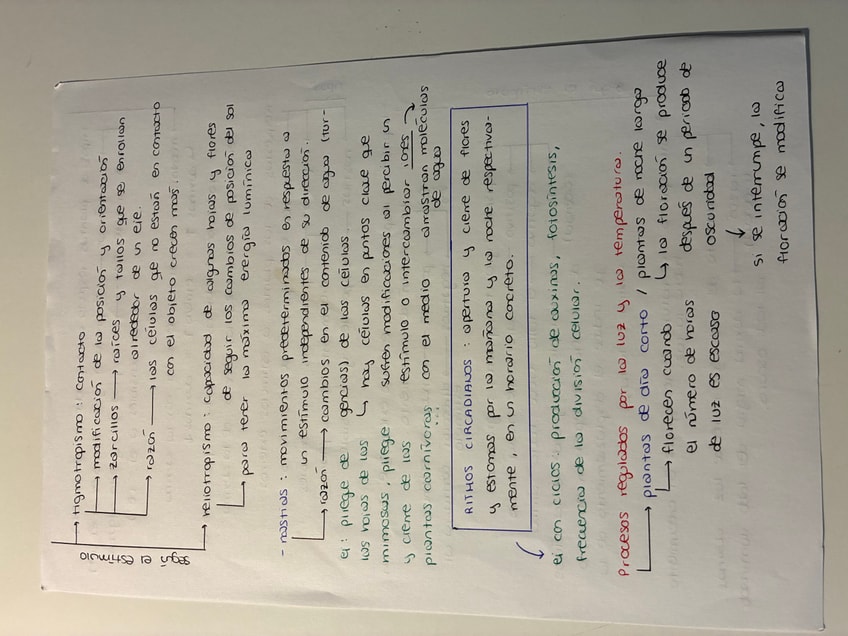 según el estímulo
→ tigmotropismo: contacto
→ modificación de la posición y orientación
→ zarcillos → raíces y tallos que se enrollan
alrededor de un eje.
→ razón → las células qe no están en contacto
con el objeto crecen más..
→ heliotropismo: capacidad de algunas hojas y flores
de seguir los cambios de posición del sol
→ para tener la máxima energía lumínica
- nastias: movimientos predeterminados en respuesta a
un estímulo independientes de su dirección.
→ razón → cambios en el contenido de agua (tur-
gencias) de las células
ej: pliege de
las hojas de las
mimosas, pliege
y cierre de las
plantas carnívoras ...
↳ hay células en puntos clave que
sufren modificaciones al percibir un
estímulo o intercambiar iones →
con el medio arrastran moléculas
de agua
RITMOS CIRCADIANOS: apertura y cierre de flores
y estomas por la mañana y la noche respectiva-
mente, en un horario concreto.
ej con ciclos: producción de auxinas, fotosíntesis,
frecuencia de la división celular.
Procesos regulados por la luz y la temperatura.
→ plantas de día corto / plantas de noche larga
→ florecen cuando
el número de horas
de luz es escaso
↳ la floración se produce
después de un periodo de
oscuridad
↓
si se interrumpe, la
floración se modifica